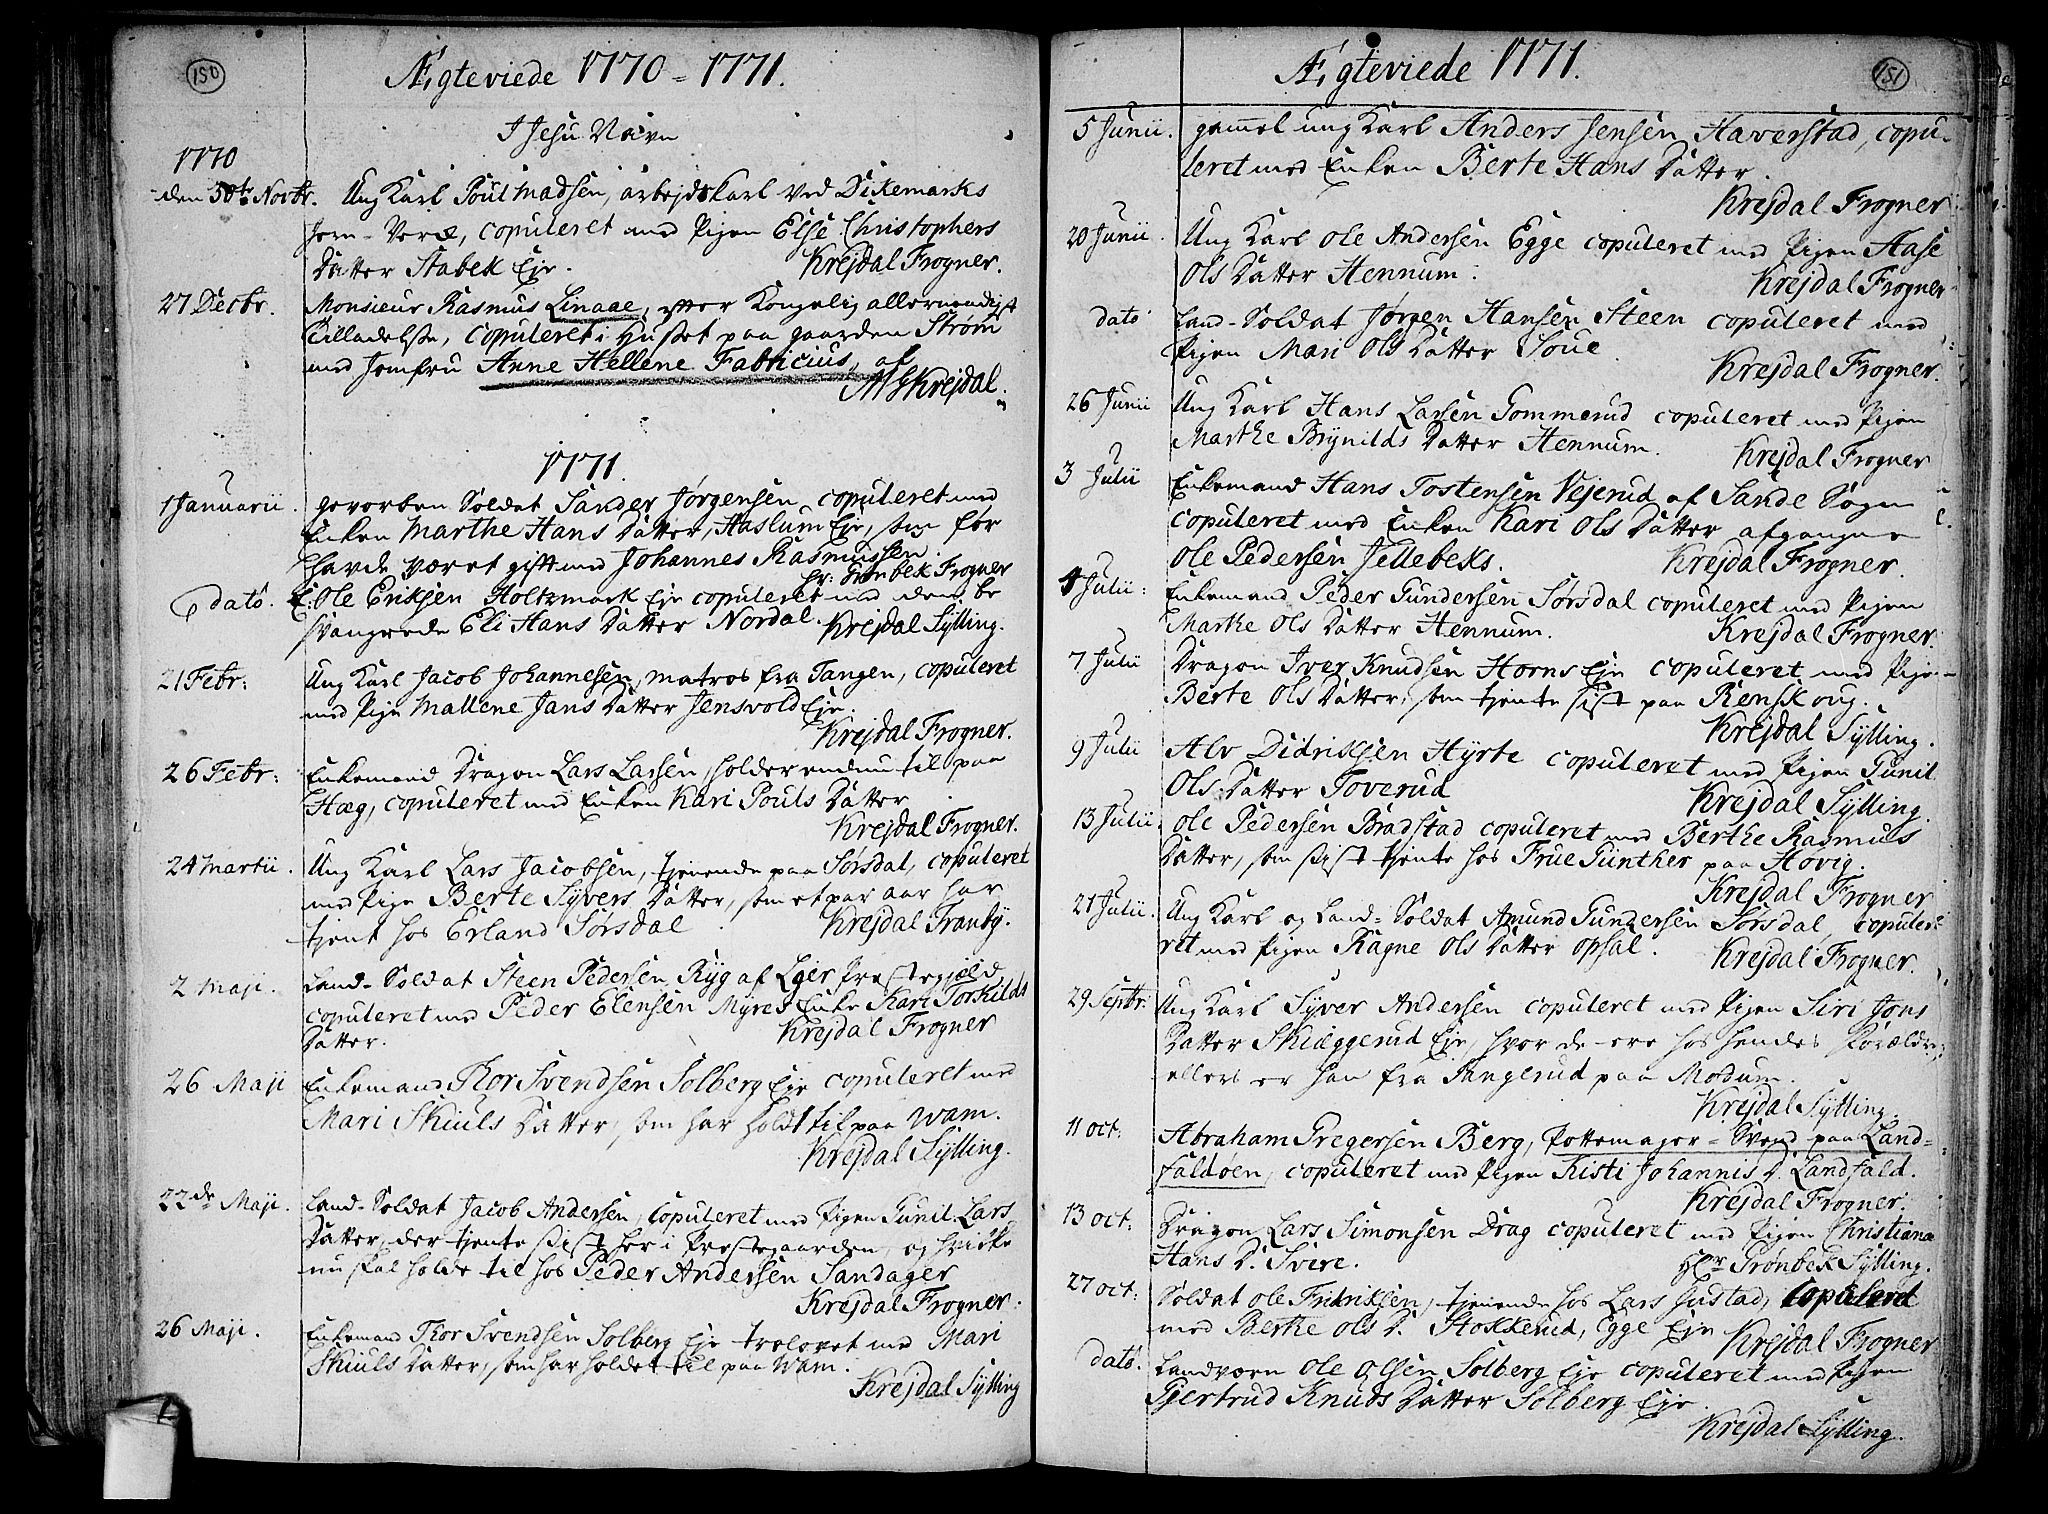 150
Ægteviede 1770 = 1771.
I Jesu Navn
1770
den 30te Novbr. Ung Karl Poul Madsen, arbejdskarl ved Dikemarks
Jern-Verk, copuleret med Pigen Else Christophers
Datter Stabek Eje. Krejdal Frogner.
27 Decbr. Monsieur Rasmus Linaae, efter Kongelig allernaadigst
Tilladelse, copuleret i Huset paa gaarden Strøm
med Jomfru Anne Hellene Fabricius, af
Krejdal.
1771.
1 Januarii. gevorben Soldat Sander Jørgensen copuleret med
Enken Marthe Hans Datter, Haslum Eje, som før
havde været gift med Johannes Rasmussen.
Hr: Grønbek Frogner
dato. E: Ole Eriksen Holtzmark Eje copuleret med den be
svangrede Eli Hans Datter Nordal. Krejdal Sylling.
21 Febr: Ung Karl Jacob Johannesen, matros fra Tangen, copuleret
med Pige Mallene Jans Datter Jensvold Eje.
Krejdal Frogner.
26 Febr: Enkemand Dragon Lars Larsen, holder endnu til paa
Hæg, copuleret med Enken Kari Pouls Datter
Krejdal Frogner.
24 Martii. Ung Karl Lars Jacobsen, tienende paa Sørsdal, copuleret
med Pige Berte Syvers Datter, som et par aar har
tient hos Erland Sørsdal. Krejdal Tranby.
2 Maji. Land-Soldat Steen Pedersen Ryg af Eger Præstegield
copuleret med Peder Elensen Myres Enke Kari Torkilds
Datter. Krejdal Frogner
26 Maji Enkemand Thor Svendsen Solberg Eje copuleret med
Mari Skiuls Datter, som har holdt til paa Wam.
Krejdal Sylling.
22de Maji. Land-Soldat Jacob Andersen, copuleret med Pigen Gunil Lars
Datter, der tjente sist her i Præstegaarden, og
nu skal holde til hos Peder Andersen Sandager
Krejdal Frogner.
26 Maji. Enkemand Thor Svendsen Solberg Eje trolovet med Mari
Skiuls Datter, som har holdet til paa Wam.
Krejdal Sylling
151
Ægteviede 1771.
5 Junii. gamel ung Karl Anders Jensen Haverstad, copu-
leret med Enken Berte Hans Datter.
Krejdal Frogner
20 Junii. Ung Karl Ole Andersen Egge copuleret med Pigen Aase
Ols Datter Hennum. Krejdal Frogner
dato Land-Soldat Jørgen Hansen Steen copuleret med
Pigen Mari Ols Datter Soue.
Krejdal Frogner.
26 Junii Ung Karl Hans Larsen Gommerud copuleret med Pigen
Marthe Brynilds Datter Hennum. Krejdal Frogner
3 Julii Enkemand Hans Tostensen Vejerud af Sande Sogn
copuleret med Enken Kari Ols Datter afgangne
Ole Pedersen Jellebeks. Krejdal Frogner.
4 Julii: Enkemand Peder Gundersen Sørsdal copuleret med Pigen
Marthe Ols Datter Hennum. Krejdal Frogner.
7 Julii Dragon Iver Knudsen Horns Eje copuleret med Pigen
Berte Ols Datter, som tjente sist paa Renskoug.
Krejdal Sylling.
9 Julii Alv Didriksen Hyrte copuleret med Pigen Gunil
Ols Datter Toverud Krejdal Sylling.
13 Julii. Ole Pedersen Bradstad copuleret med Berthe Rasmus
Datter, som sist tjente hos Frue Günther paa Høvig.
Krejdal Frogner
21 Julii. Ung Karl og Land-Soldat Amund Gundersen Sørsdal, copule-
ret med Pigen Ragne Ols Datter Opsal. Krejdal Frogner.
29 Septbr: Ung Karl Syver Andersen copuleret med Pigen Siri Jons
Datter Skiæggerud Eje, hvor de ere hos hendes Forældre,
ellers er han fra Tangerud paa Modum.
Krejdal Sylling.
11 Oct: Abraham Gregersen Berg, Pottemager-Svend paa Land-
faldøen, copuleret med Pigen Kisti Johannis D. Landfald.
Krejdal Frogner.
13 Oct: Dragon Lars Simonsen Drag copuleret med Pigen Christiana
Hans D. Svere. Hr Grønbek Sylling.
27 Oct: Soldat Ole Fridriksen, tjenende hos Lars Gustad, copuleret
med Berthe Ols D. Stokkerud, Egge Eje Krejdal Frogner
dato. Landværn Ole Olsen Solberg Eje copuleret med Pigen
Gjertrud Knuds Datter Solberg Eje.
Krejdal Sylling.